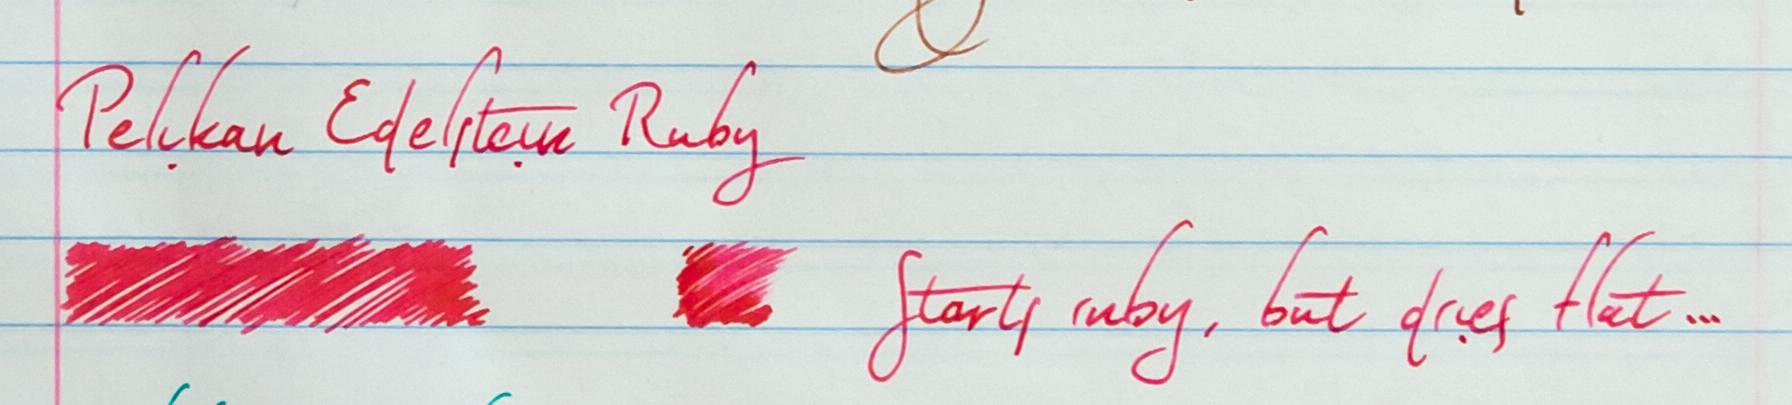 Pelikan Edelstein Ruby
Starts ruby, but dries flat...